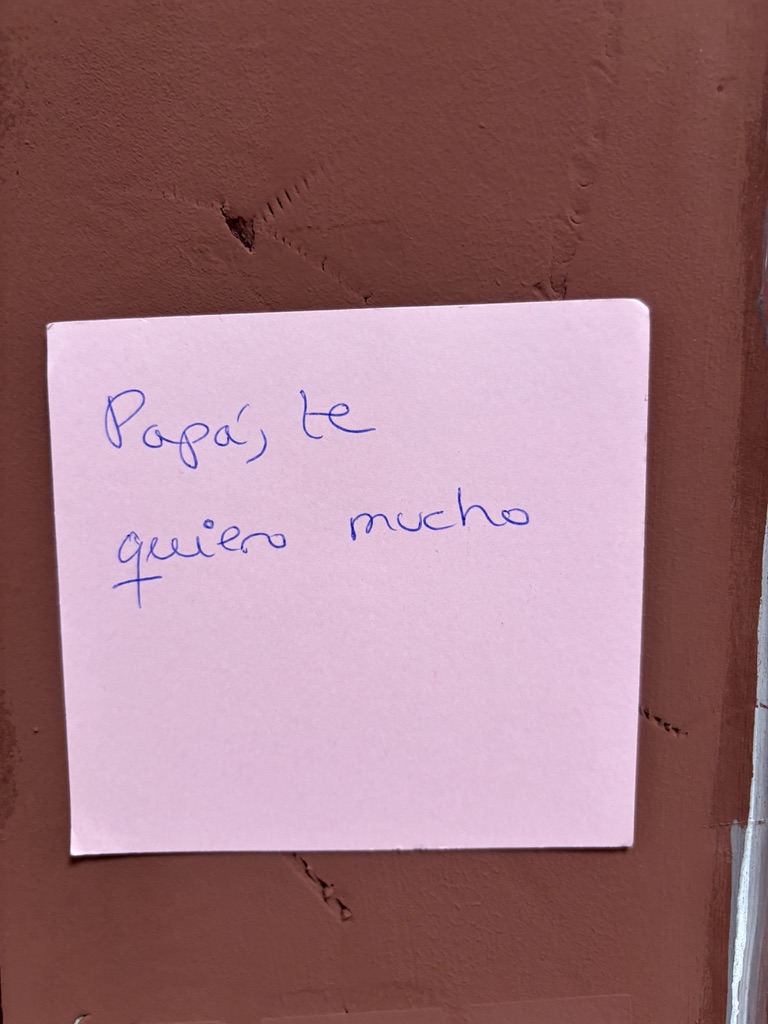 Papá, te
quiero mucho